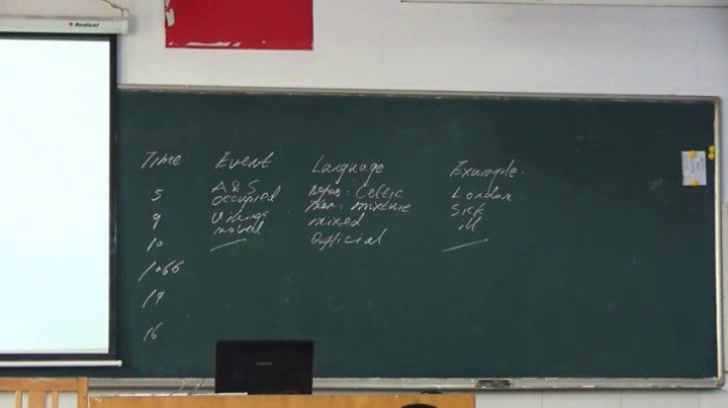 Redleaf
Time Event Language Example.
5 A&S occupied Before: Celtic Then: mixture London
9 Vikings moved mixed Sick ill
10 Official
1066
14
16